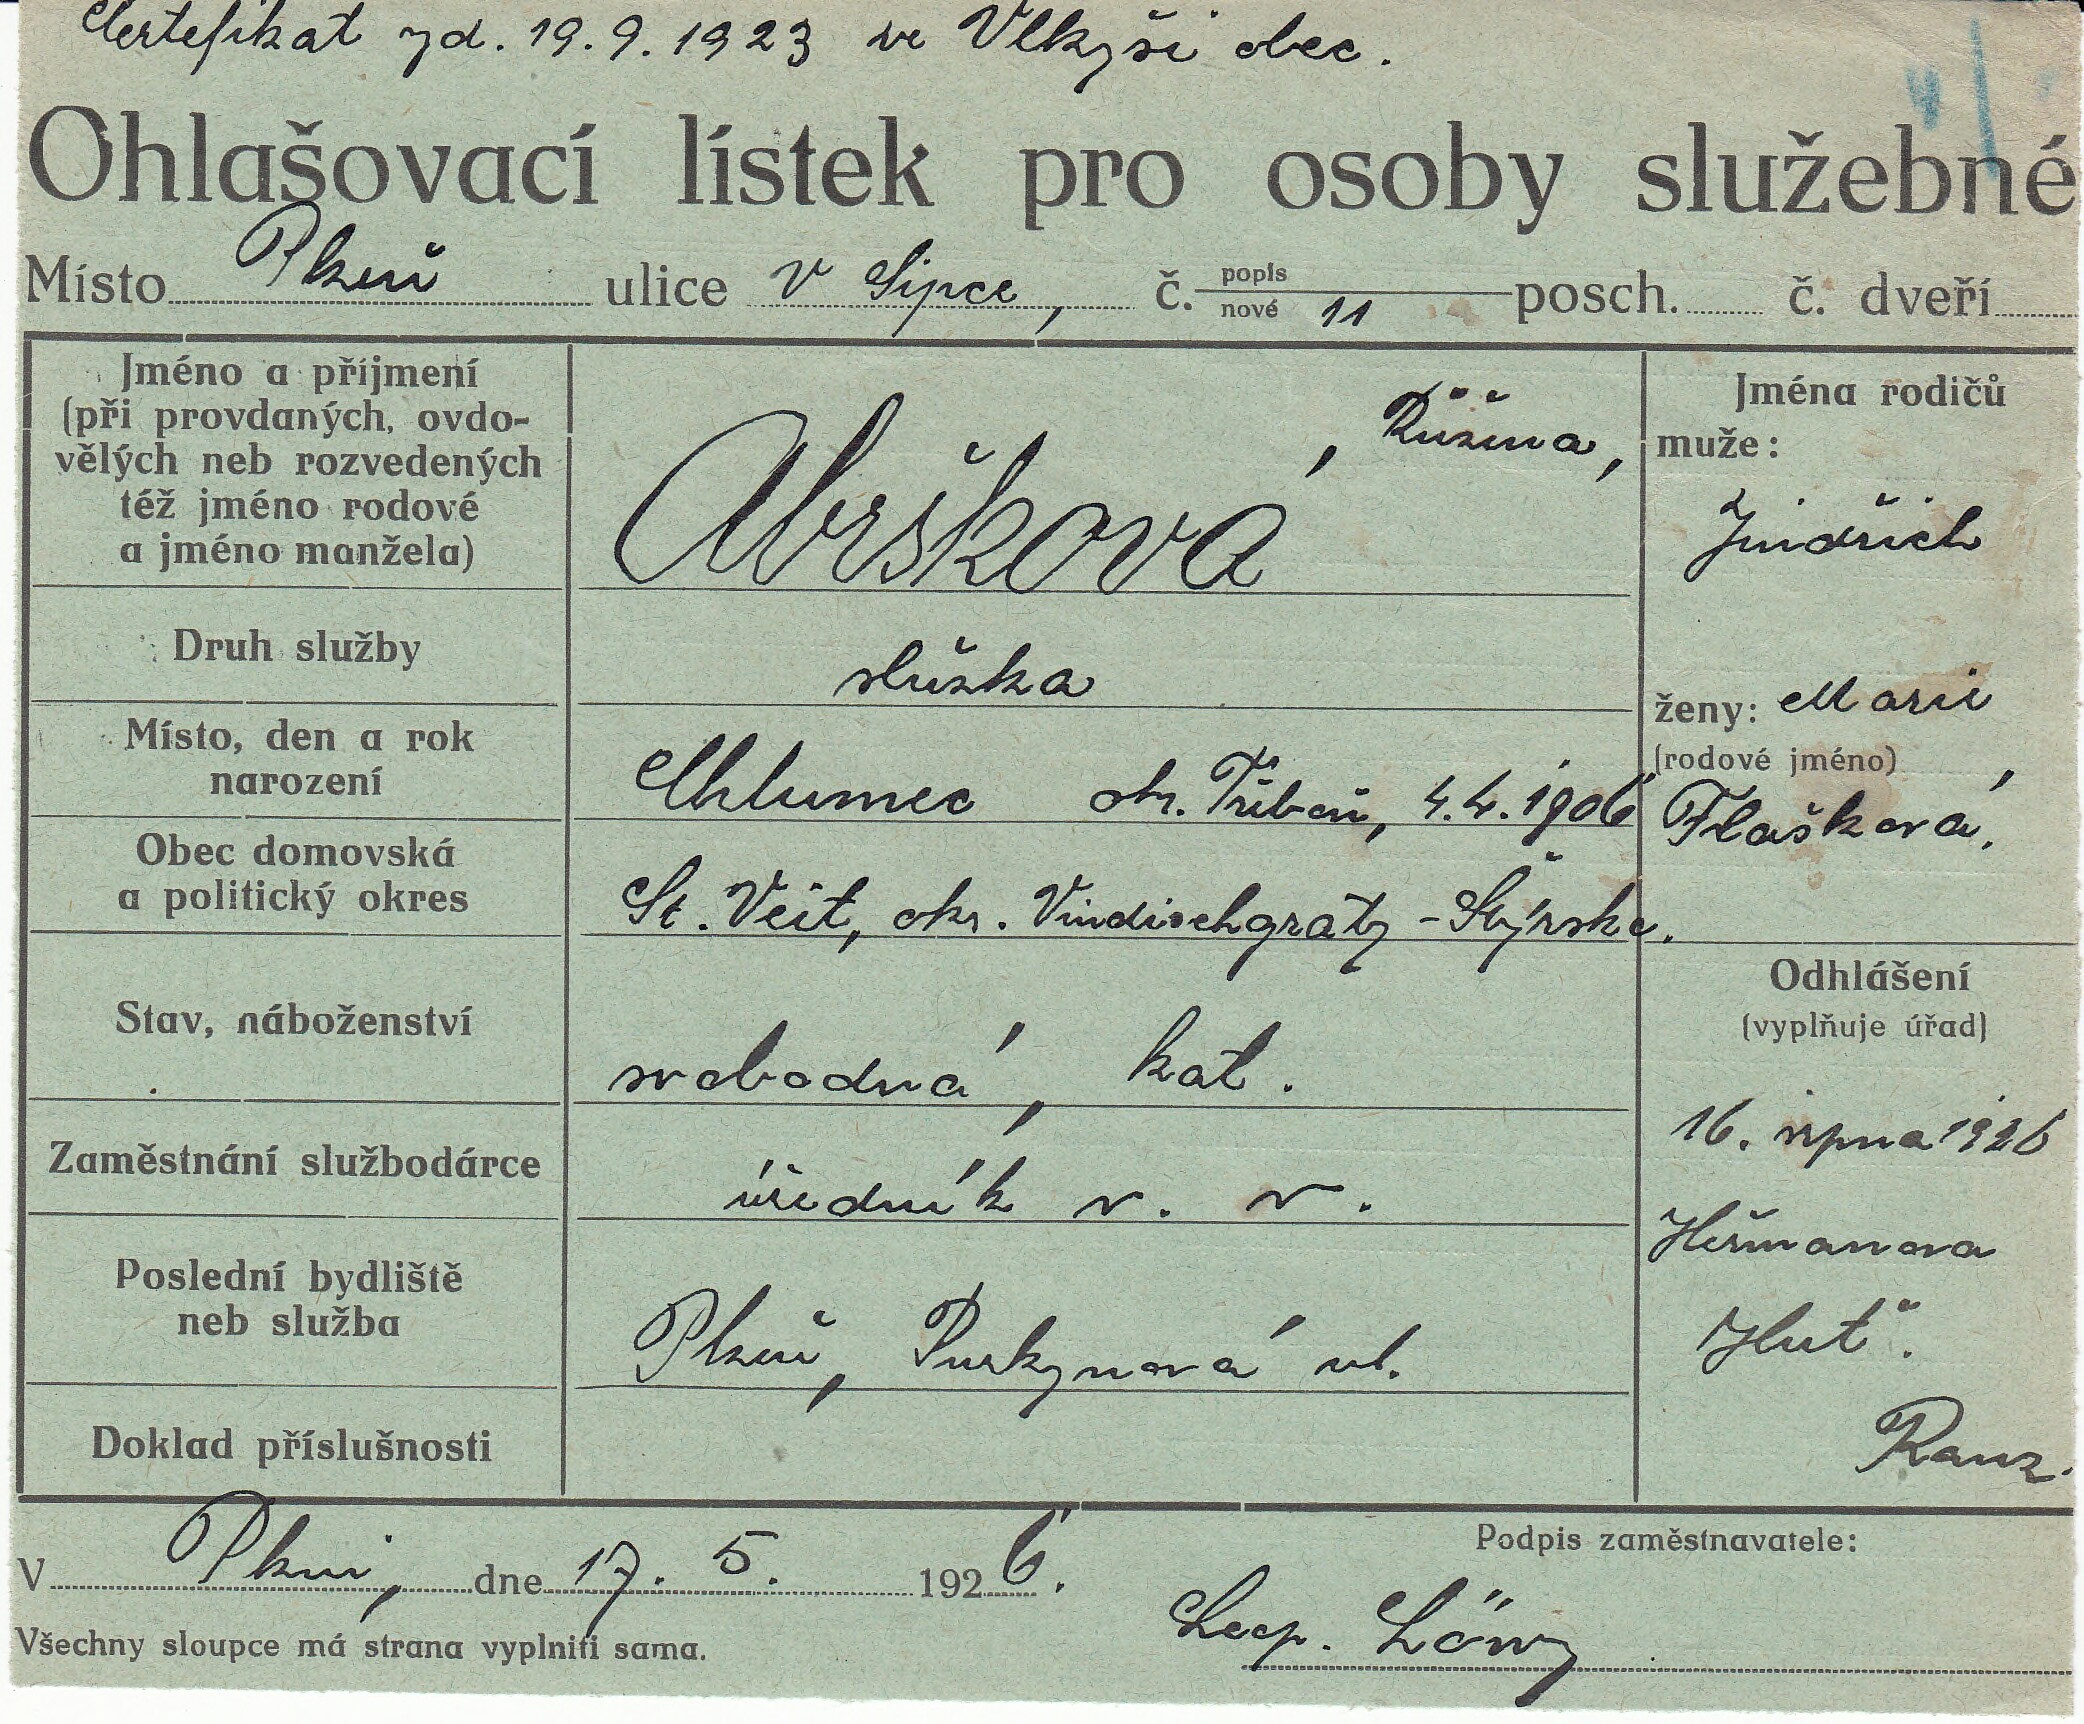 Certefikat zd. 19. 9. 1923 ve Vlkyši obec.
Ohlašovací lístek pro osoby služebné
Místo Plzeň ulice V Šipce, č. popis nové 11 posch. č. dveří
Jméno a příjmení (při provdaných, ovdo-
vělých neb rozvedených
též jméno rodové
a jméno manžela)
Abršková, Růžena,
Jména rodičů
muže:
Jindřich
Druh služby
služka
ženy: Marie
(rodové jméno)
Flašková.
Místo, den a rok
narození
Chlumec okr. Třeboň, 4. 4. 1906
Obec domovská
a politický okres
St. Veit, okr. Vindischgrätz - Štýrsko.
Odhlášení
(vyplňuje úřad)
16. srpna 1926
Heřmanova
Huť.
Stav, náboženství
svobodná, kat.
Zaměstnání službodárce
úředník v. v.
Poslední bydliště
neb služba
Plzeň, Purkynová ul.
Doklad příslušnosti
V Plzni, dne 17. 5. 1926.
Podpis zaměstnavatele:
Leop. Löwy
Všechny sloupce má strana vyplniti sama.